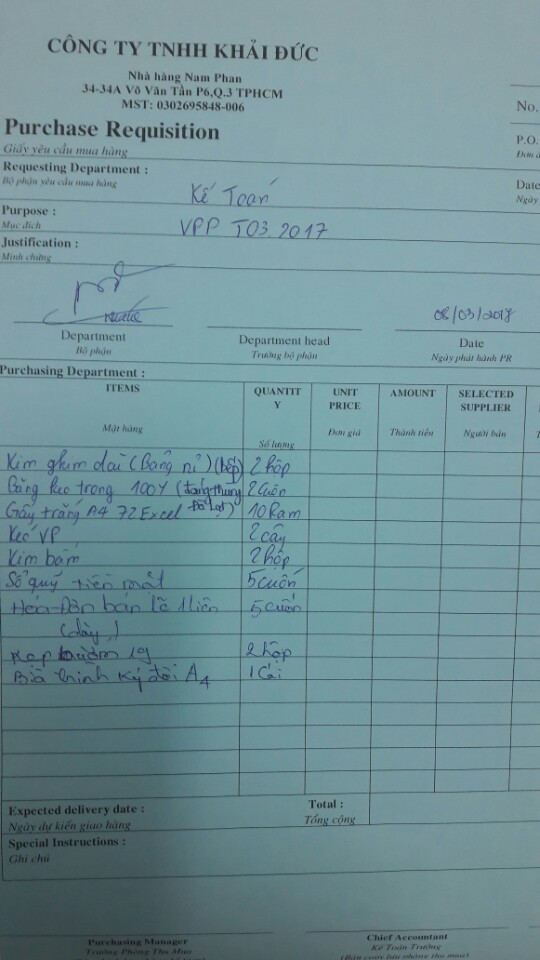 CÔNG TY TNHH KHẢI ĐỨC
Nhà hàng Nam Phan
34-34A Võ Văn Tần P6,Q.3 TPHCM
MST: 0302695848-006
No.
Purchase Requisition
Giấy yêu cầu mua hàng
P.O.
Requesting Department :
Bộ phận yêu cầu mua hàng
Kế Toán
Date
Ngày
Purpose :
Mục đích
VPP T03.2017
Justification :
Minh chứng
08/03/2017
Department
Bộ phận
Department head
Trưởng bộ phận
Date
Ngày phát hành PR
Purchasing Department :
ITEMS QUANTIT UNIT AMOUNT SELECTED
Y PRICE SUPPLIER
Mặt hàng Số lượng Đơn giá Thành tiền Người bán
Kim ghim dài (Bằng nỉ) (hộp) 2 hộp
Băng keo trong 100Y 2 cuồn
Giấy trắng A4 72 Excel 10 Ram
Kéo VP 2 cây
Kim bấm 2 hộp
Sổ quỹ tiền mặt 5 cuốn
Hóa Đơn bán lẻ 1 liên 5 cuốn
(dày)
Kẹp bướm 19 2 hộp
Bìa trình ký đôi A4 1 Cái
Expected delivery date :
Ngày dự kiến giao hàng
Total :
Tổng cộng
Special Instructions :
Ghi chú
Purchasing Manager
Trưởng Phòng Thu Mua
Chief Accountant
Kế Toán Trưởng